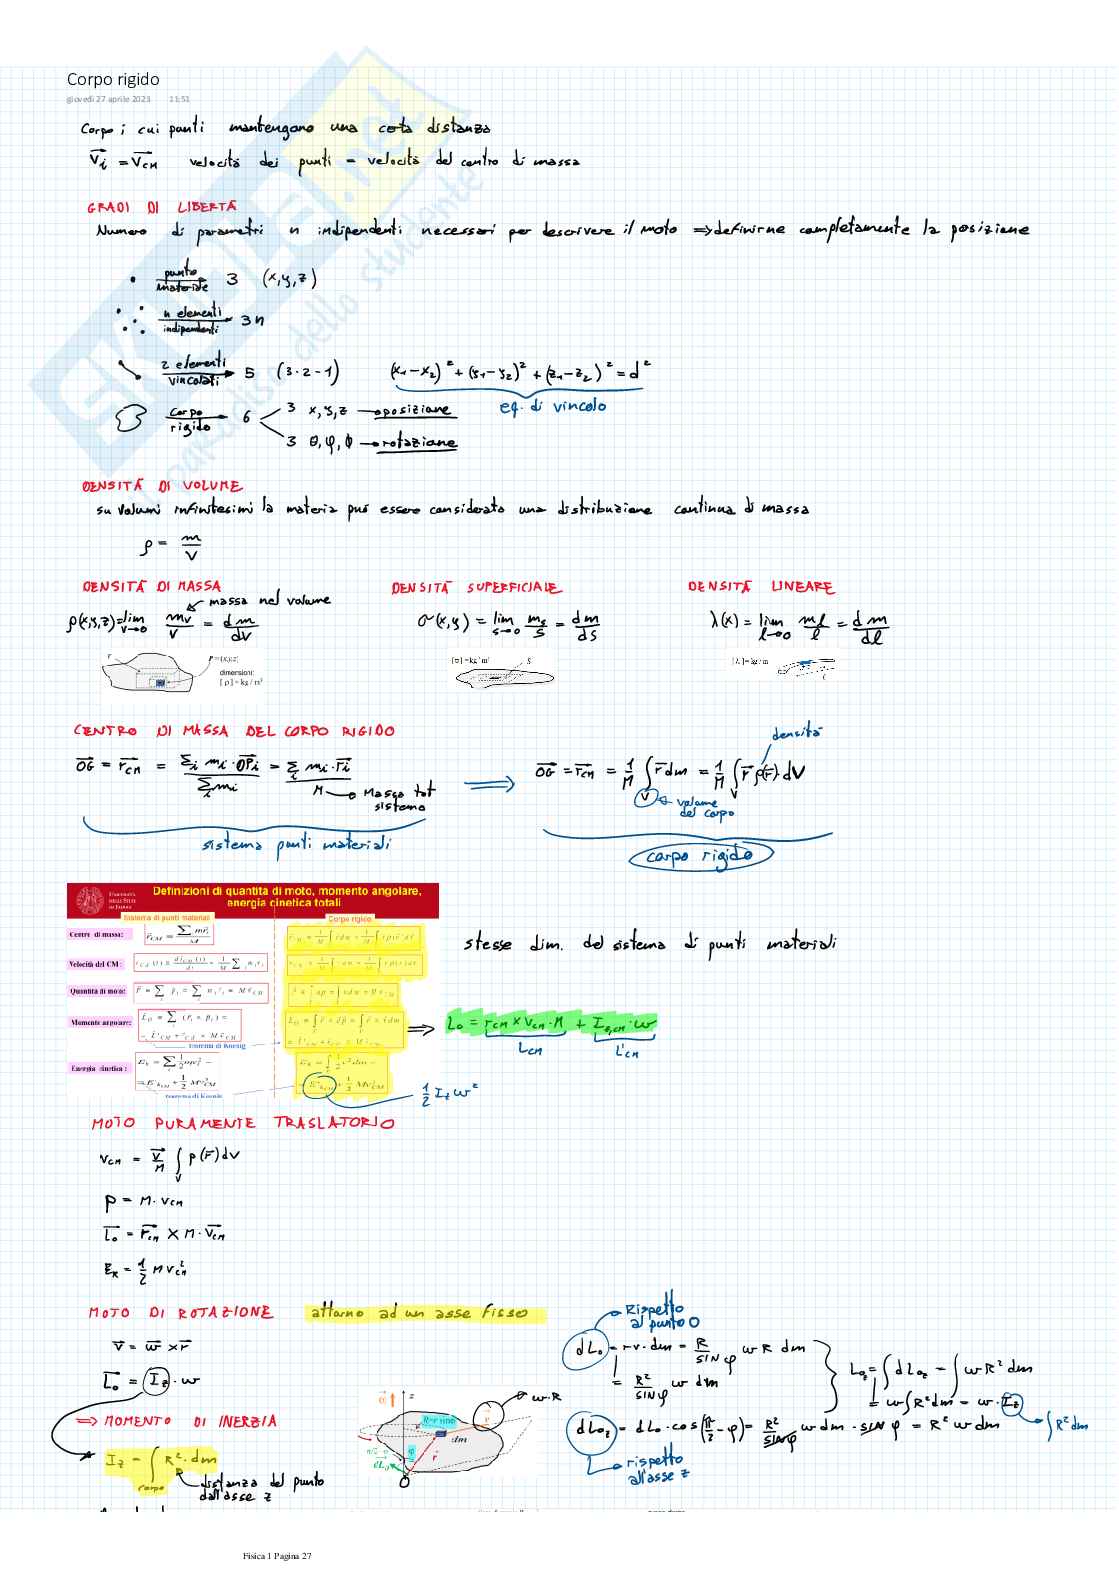 Corpo rigido
giovedì 27 aprile 2023 11:51
Corpo i cui punti mantengono una certa distanza
v⃗i = v⃗CM velocità dei punti = velocità del centro di massa
GRADI DI LIBERTÀ
Numero di parametri n indipendenti necessari per descrivere il moto ⇒ definirne completamente la posizione
punto materiale → 3 (x,y,z)
n elementi indipendenti → 3n
2 elementi vincolati → 5 (3·2-1) (x1-x2)² + (y1-y2)² + (z1-z2)² = d²
eq. di vincolo
corpo rigido → 6
3 x,y,z → posizione
3 θ,φ,ϕ → rotazione
DENSITÀ DI VOLUME
su volumi infinitesimi la materia può essere considerata una distribuzione continua di massa
ρ = m/V
DENSITÀ DI MASSA DENSITÀ SUPERFICIALE DENSITÀ LINEARE
massa nel volume
ρ(x,y,z) = lim V→0 mV/V = dm/dV σ(x,y) = lim S→0 mS/S = dm/dS λ(x) = lim l→0 ml/l = dm/dl
P=(x,y,z)
dimensioni:
[ρ] = kg/m³
[σ] = kg/m² S
[λ] = kg/m
CENTRO DI MASSA DEL CORPO RIGIDO
densità
OG = r⃗CM = Σi mi·OPi / Σi mi = Σi mi·r⃗i / M ⇒ OG = r⃗CM = 1/M ∫V r⃗ dm = 1/M ∫V r⃗ ρ(r⃗)·dV
M → Massa tot sistema
volume del corpo
sistema punti materiali
corpo rigido
UNIVERSITÀ DEGLI STUDI DI PADOVA
Definizioni di quantità di moto, momento angolare,
energia cinetica totali
Sistema di punti materiali Corpo rigido
Centro di massa:
Velocità del CM:
Quantità di moto:
Momento angolare:
teorema di Koenig
Energia cinetica:
teorema di Koenig
stesse dim. del sistema di punti materiali
⇒ L0 = rCM × vCM·M + I0,CM·ω
LCM L'CM
1/2 Iz ω²
MOTO PURAMENTE TRASLATORIO
vCM = v⃗/M ∫V ρ(r⃗)dV
p = M·vCM
L⃗0 = r⃗CM × M·v⃗CM
EK = 1/2 M vCM²
MOTO DI ROTAZIONE attorno ad un asse fisso
v⃗ = ω⃗ × r⃗
L⃗0 = Iz·ω
⇒ MOMENTO DI INERZIA
Iz = ∫corpo R²·dm
distanza del punto
dall'asse z
z
R=r sinφ
dm
φ
r⃗
dL0
O
ω·R
Rispetto
al punto O
dL0 = rv·dm = R/sinφ ωR dm
= R²/sinφ ω dm
dL0z = dL0·cos(π/2-φ) = R²/sinφ ω dm·sinφ = R² ω dm
rispetto
all'asse z
L0z = ∫dL0z = ∫ωR²dm
= ω∫R²dm = ω·Iz
∫R²dm
Fisica 1 Pagina 27